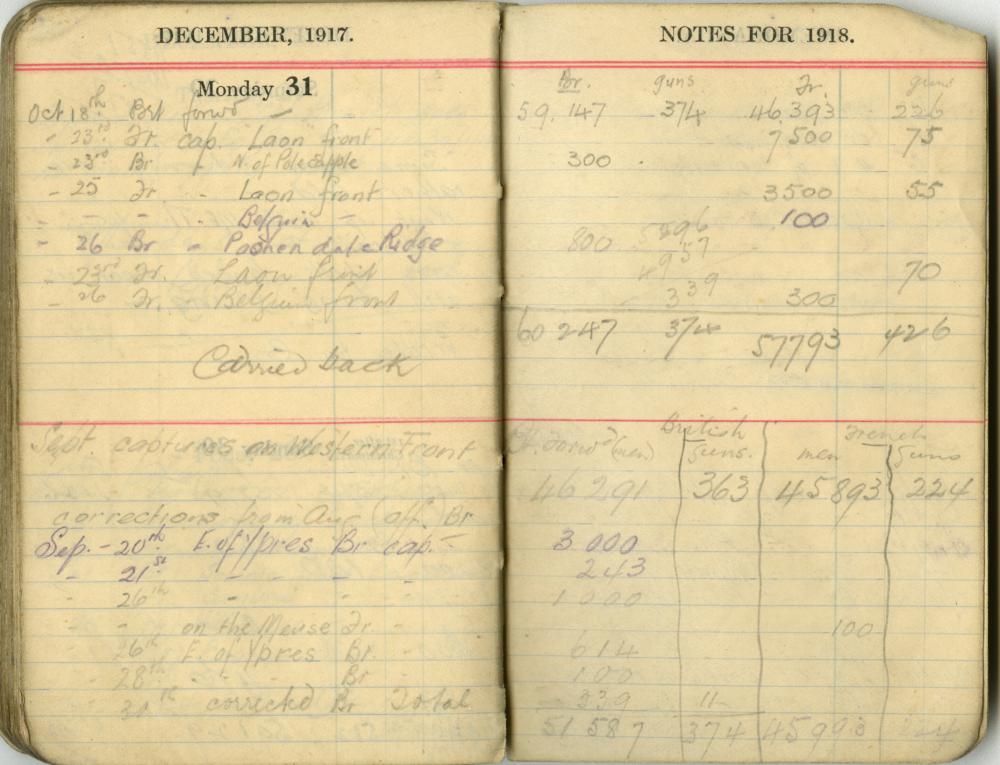 DECEMBER, 1917.
Monday 31
Oct 18th Brt forwd -
- 23rd Fr. cap. Laon front
- 23rd Br " N. of Polecapple
- 25 Fr - - Laon front
- - - - Belgium -
- 26 Br - Pashendale Ridge
- 23rd Fr. Laon front
- 26 Fr. Belgium front
Carried back
Sept. captures on Western Front
corrections from Aug (off.) Br
Sep. - 20th E. of Ypres Br cap. -
- 21st - - - -
- 26th - - - -
- - on the Meuse Fr -
- 26th E. of Ypres Br. -
- 28th - " - Br -
30th corrected Br Total
NOTES FOR 1918.
Br. guns Fr. guns
59,147 374 46,393 226
7500 75
300
3500 55
100
800
70
339 300
60 247 374 57793 426
British French
Bt. forwd (men) guns. men guns
46 291 363 45893 224
3 000
243
1 000
100
614
100
339 11
51 587 374 45993 224